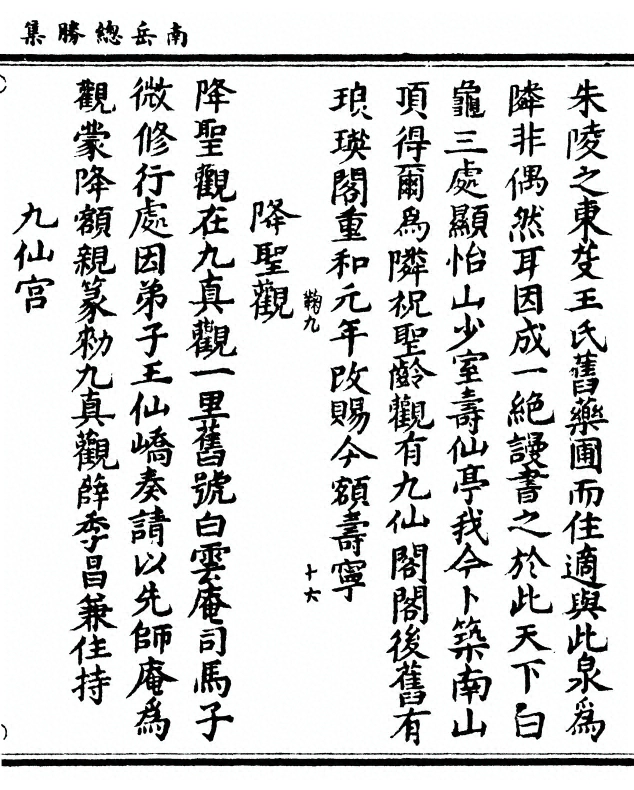 南岳總勝集
朱陵之東芟王氏舊藥圃而住適與此泉爲
隣非偶然耳因成一絶謾書之於此天下白
龜三處顯怡山少室壽仙亭我今卜築南山
頂得爾爲隣祝聖齡觀有九仙閣閣後舊有
琅瑛閣重和元年改賜今額壽寧
十六
降聖觀
鞠九
降聖觀在九真觀一里舊號白雲庵司馬子
微修行處因弟子王仙嶠奏請以先師庵爲
觀蒙降額親篆勑九真觀薛季昌兼住持
九仙宫